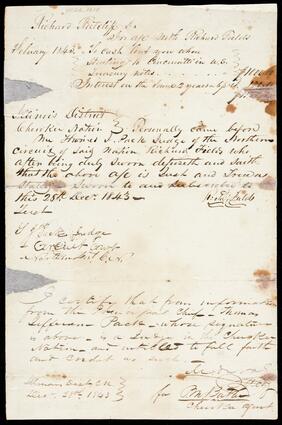 Richard Ratcliff Sr
In a/c with Richard Fields
February 1842 To cash lent you when
Starting to Cincinnatti in U.S.
Treasury notes
Interest on the same 2 years
Illinois District
Cherokee Nation Personally came before
me Thomas J. Pack Judge of the Northern
Circuit of said Nation Richard Fields who
after being duly Sworn deposeth and saith
that the above a/c is Just and
Sworn to and subscribed to
this 28th Decr. 1843
Richd Fields
Test
T J Pack Judge
Circuit Court
Northern C.N.
I certify that from information
from the Principal Chief Thomas
Jefferson Pack whose signature
is above is a Judge in the Cherokee
Nation and entitled to full faith
and credit as such
Decr. 28th 1843
for P.M. Butler
Cherokee agent